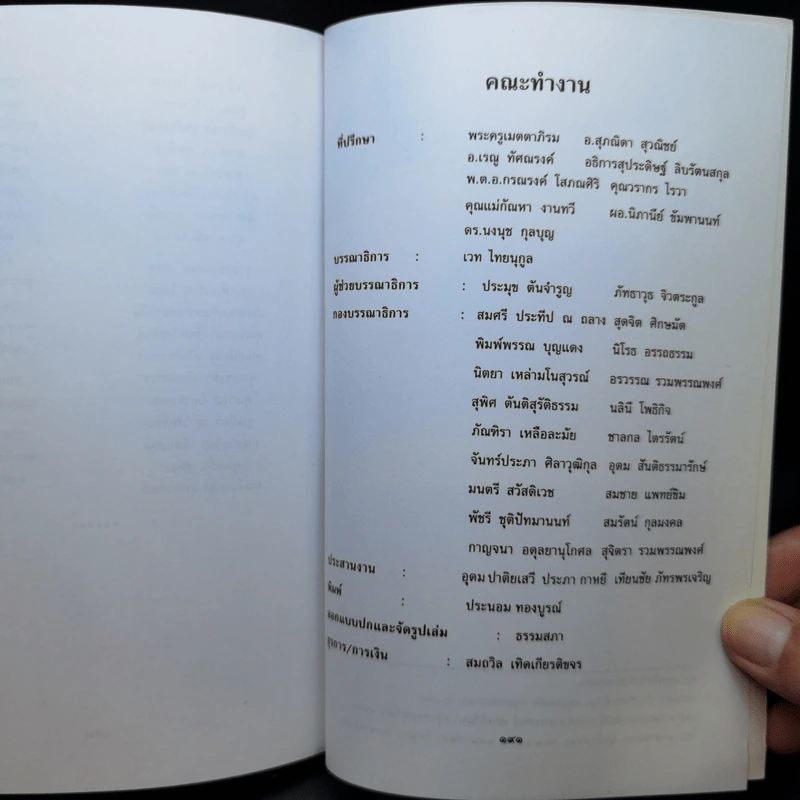 คณะทำงาน
ที่ปรึกษา : พระครูเมตตาภิรม อ.สุภณิดา สุวณิชย์
อ.เรณู ทัศณรงค์ อธิการสุประดิษฐ์ ลิบรัตนสกุล
พ.ต.อ.กรณรงค์ โสภณศิริ คุณวรากร ไรวา
คุณแม่กัณหา งานทวี ผอ.นิภานีย์ ขัมพานนท์
ดร.นงนุช กุลบุญ
บรรณาธิการ : เวท ไทยนุกูล
ผู้ช่วยบรรณาธิการ : ประมุข ตันจำรูญ ภัทธาวุธ จิวตระกูล
กองบรรณาธิการ : สมศรี ประทีป ณ ถลาง สุดจิต ศิกษมัต
พิมพ์พรรณ บุญแดง นิโรธ อรรถธรรม
นิตยา เหล่ามโนสุวรณ์ อรวรรณ รวมพรรณพงศ์
สุพิศ ตันติสุรัติธรรม นลินี โพธิกิจ
ภัณฑิรา เหลือละมัย ชาลกล ไตรรัตน์
จันทร์ประภา ศิลาวุฒิกุล อุดม สันติธรรมารักษ์
มนตรี สวัสดิเวช สมชาย แพทย์ขิม
พัชรี ชุติปัทมานนท์ สมรัตน์ กุลมงคล
กาญจนา อดุลยานุโกศล สุจิตรา รวมพรรณพงศ์
ประสานงาน : อุดม ปาติยเสวี ประภา กาหยี เทียนชัย ภัทรพรเจริญ
พิมพ์ : ประนอม ทองบูรณ์
ออกแบบปกและจัดรูปเล่ม : ธรรมสภา
ธุรการ/การเงิน : สมถวิล เทิดเกียรติขจร
๑๙๑